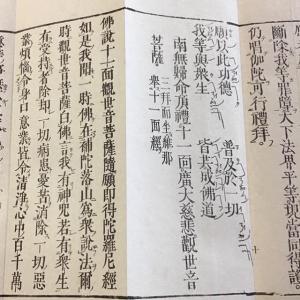 斷除我等罪障天上下法界平等現當同得證。
仍唱伽陀可行禮拜。
願以此功德　普及於一切
我等與衆生　皆共成佛道
南無歸命頂禮十一面廣大慈悲觀世音
菩薩　三拜而坐　維那
擧十一面經
佛説十一面觀世音菩薩隨願即得陀羅尼經
如是我聞一時佛在補陀落山爲衆説法爾
時觀世音菩薩白佛言我有神咒若有衆生
有受持者除卻一切病患憂苦消除一切惡
業煩惱令身口意業皆令清淨心中百千萬